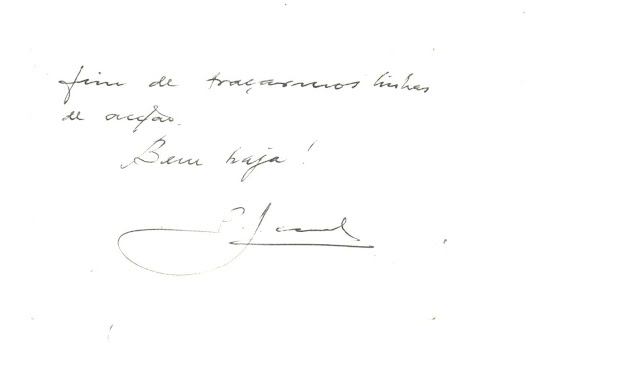 fim de traçarmos linhas
de acção.
Bem haja!